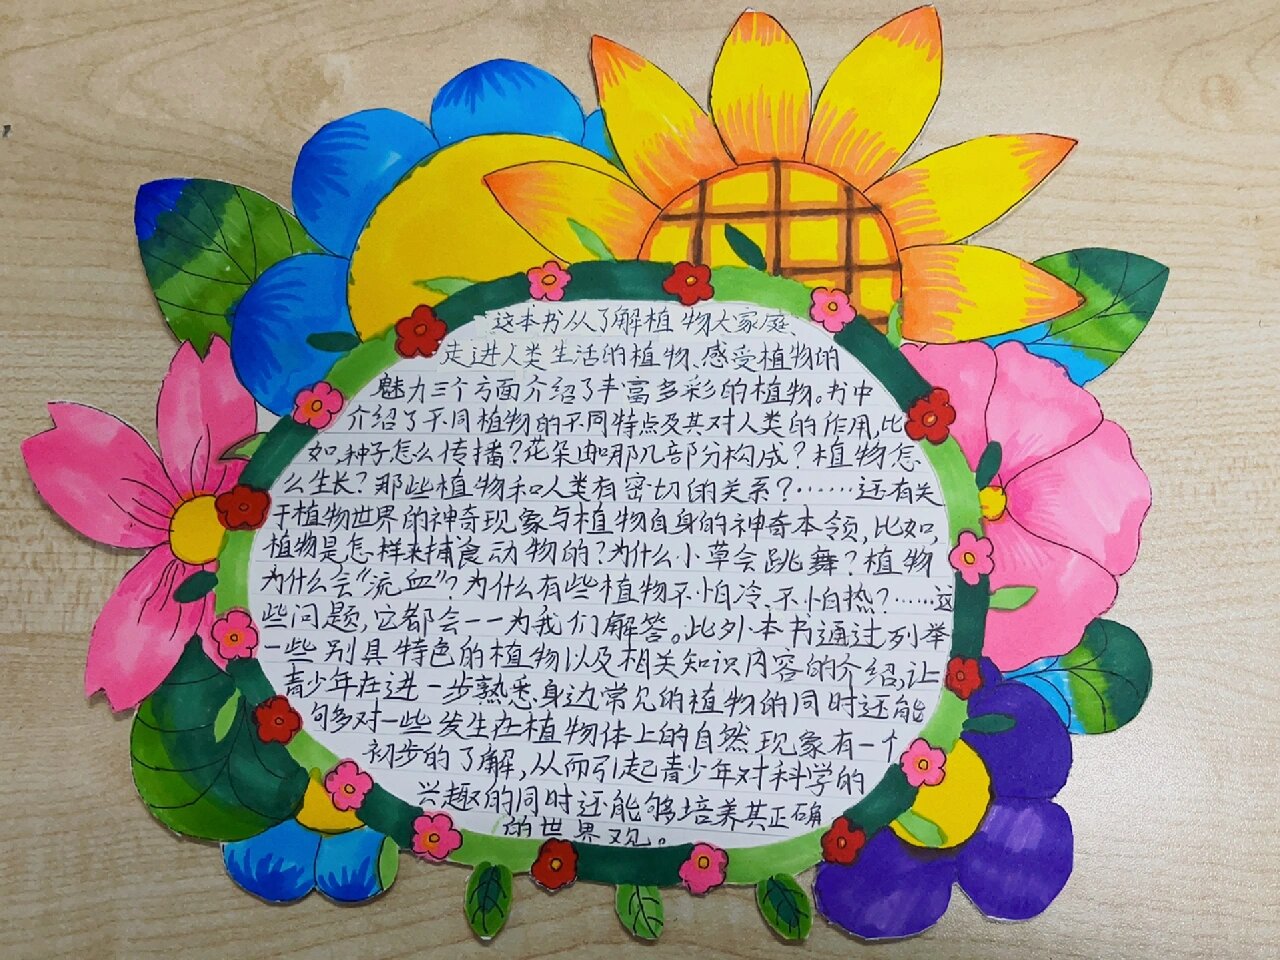 这本书从了解植物大家庭、
走进人类生活的植物、感受植物的
魅力三个方面介绍了丰富多彩的植物。书中
介绍了不同植物的不同特点及其对人类的作用,比
如,种子怎么传播?花朵由哪几部分构成?植物怎
么生长?那些植物和人类有密切的关系?……还有关
于植物世界的神奇现象与植物自身的神奇本领,比如,
植物是怎样来捕食动物的?为什么小草会跳舞?植物
为什么会“流血”?为什么有些植物不怕冷、不怕热?……这
些问题,它都会一一为我们解答。此外本书通过列举
一些别具特色的植物以及相关知识内容的介绍,让
青少年在进一步熟悉身边常见的植物的同时还能
够多对一些发生在植物体上的自然现象有一个
初步的了解,从而引起青少年对科学的
兴趣的同时还能够培养其正确
的世界观。